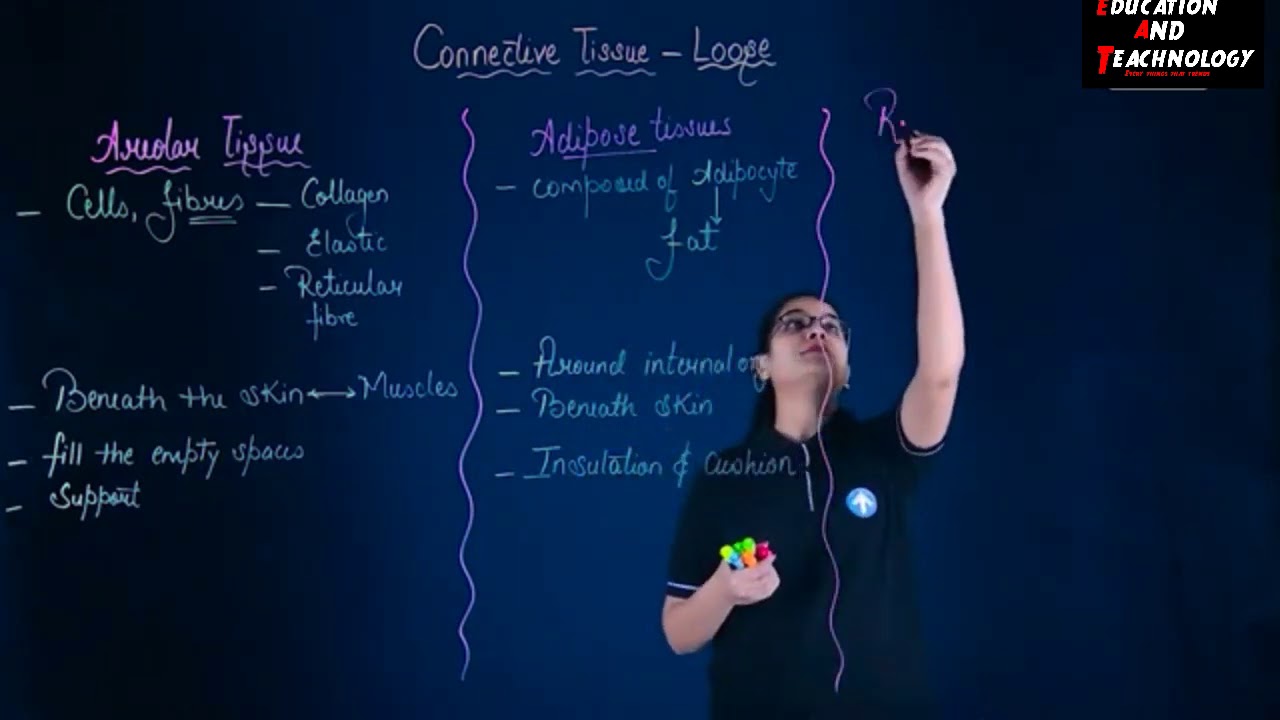 EDUCATION
AND
TEACHNOLOGY
EVERY THINGS THAT TRENDS
Connective Tissue – Loose
Areolar Tissue
– Cells, fibres – Collagen
– Elastic
– Reticular
fibre
– Beneath the skin ↔ Muscles
– fill the empty spaces
– Support
Adipose tissues
– composed of Adipocyte
↓
fat
– Around internal org
– Beneath skin
– Insulation & cushion
R